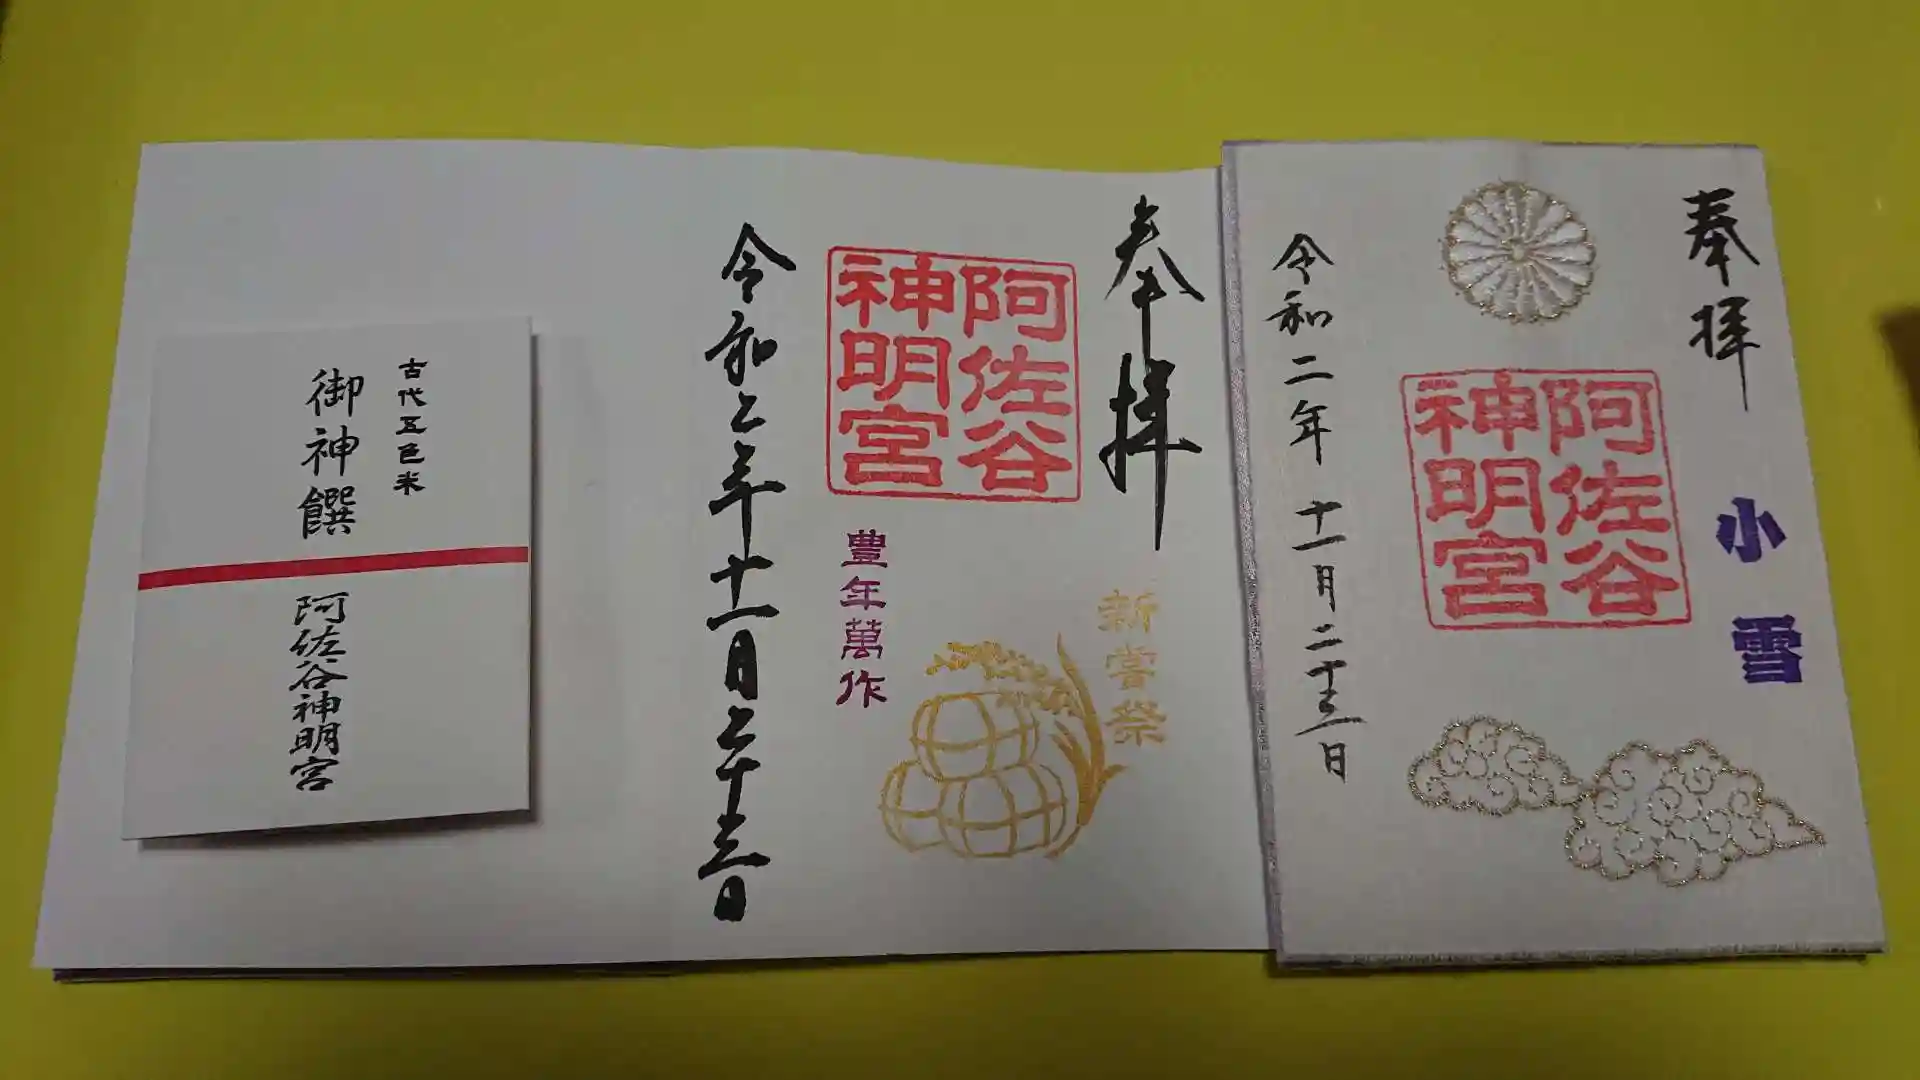 奉拝
小雪
阿佐谷
神明宮
令和二年 十一月二十三日
奉拝
新嘗祭
阿佐谷
神明宮
豊年萬作
令和二年十一月二十三日
古代五色米
御神饌
阿佐谷神明宮